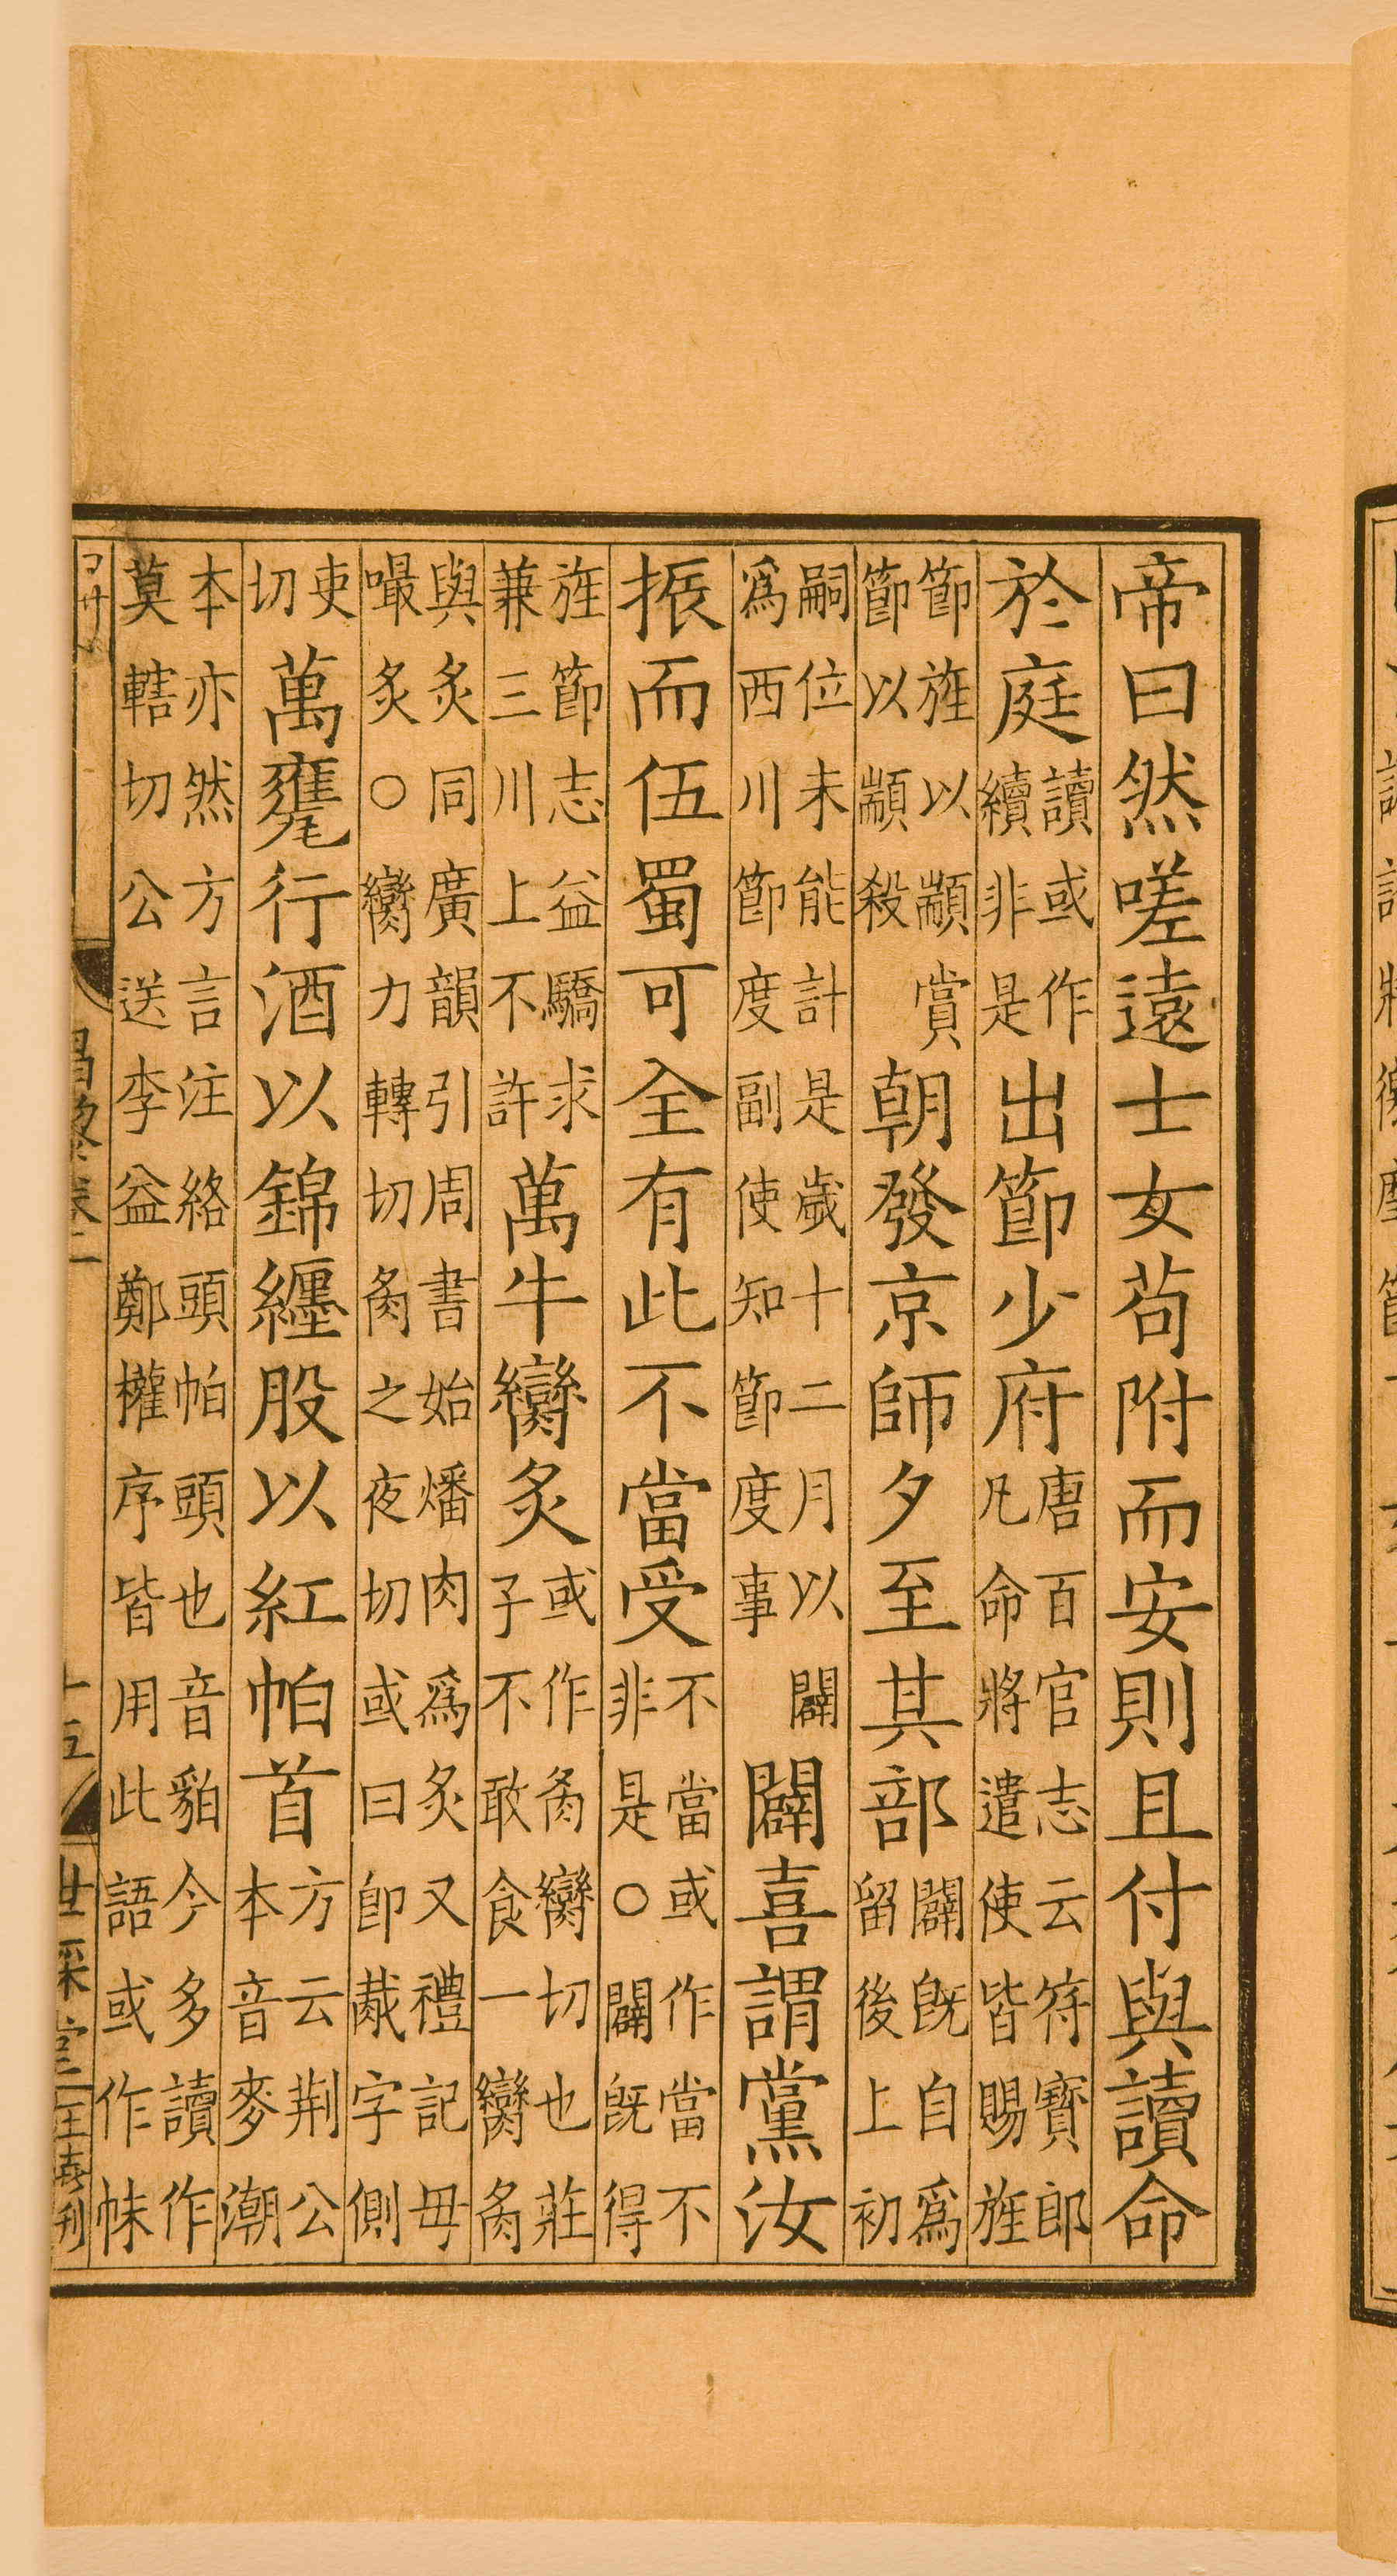 帝曰然嗟遠士女苟附而安則且付與讀命
於庭讀或作續非是出節少府唐百官志云符寳郎凡命將遣使皆賜旌
節旌以顓賞節以顓殺朝發京師夕至其部闢旣自爲留後上初
嗣位未能計是歲十二月以闢爲西川節度副使知節度事闢喜謂黨汝
振而伍蜀可全有此不當受不當或作當不非是○闢旣得
旌節志益驕求兼三川上不許萬牛臠炙或作臠切也莊子不敢食一臠
與炙同廣韻引周書始燔肉爲炙又禮記毋嘬炙○臠力轉切之夜切或曰卽胾字側
吏切萬甕行酒以錦纏股以紅帕首方云荆公本音麥潮
本亦然方言注絡頭帕頭也音貊今多讀作莫轄切公送李益鄭權序皆用此語或作帓